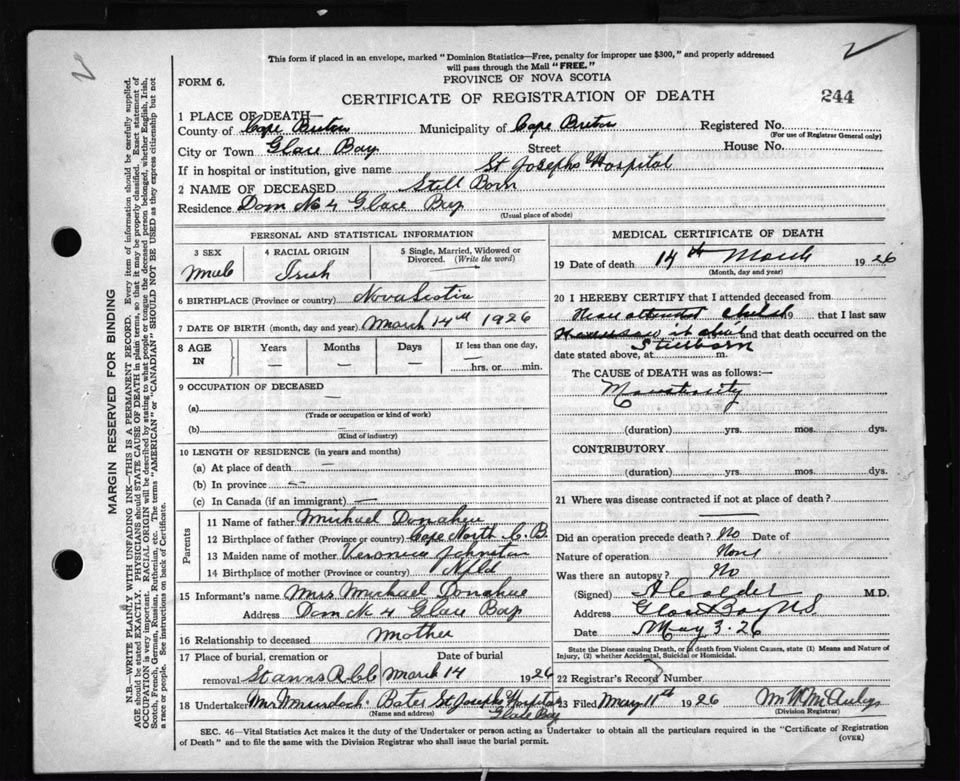 This form if placed in an envelope, marked "Dominion Statistics—Free, penalty for improper use $300," and properly addressed
will pass through the Mail "FREE."
PROVINCE OF NOVA SCOTIA
FORM 6.
CERTIFICATE OF REGISTRATION OF DEATH
244
1 PLACE OF DEATH—
County of Cape Breton Municipality of Cape Breton Registered No.
(For use of Registrar General only)
City or Town Glace Bay Street House No.
If in hospital or institution, give name St Josephs Hospital
2 NAME OF DECEASED Still Born
Residence Dom No 4 Glace Bay
(Usual place of abode)
PERSONAL AND STATISTICAL INFORMATION
3 SEX 4 RACIAL ORIGIN 5 Single, Married, Widowed or
Divorced. (Write the word)
Male Irish
6 BIRTHPLACE (Province or country) Nova Scotia
7 DATE OF BIRTH (month, day and year) March 14th 1926
8 AGE IN Years Months Days If less than one day,
— — — hrs. or min.
9 OCCUPATION OF DECEASED
(a) —
(Trade or occupation or kind of work)
(b) —
(Kind of industry)
10 LENGTH OF RESIDENCE (in years and months)
(a) At place of death —
(b) In province —
(c) In Canada (if an immigrant) —
Parents
11 Name of father Michael Donahue
12 Birthplace of father (Province or country) Cape North C. B.
13 Maiden name of mother Veronica Johnston
14 Birthplace of mother (Province or country) Nfld
15 Informant's name Mrs Michael Donahue
Address Dom No 4 Glace Bay
16 Relationship to deceased Mother
17 Place of burial, cremation or Date of burial
removal St Anns March 14 1926
18 Undertaker Mrs Murdoch Bates St Josephs Hospital
(Name and address) Glace Bay
MEDICAL CERTIFICATE OF DEATH
19 Date of death 14th March 1926
(Month, day and year)
20 I HEREBY CERTIFY that I attended deceased from
attended child 19 that I last saw
and that death occurred on the
Stillborn
date stated above, at m.
The CAUSE of DEATH was as follows:—
Monstrosity
(duration) yrs. mos. dys.
CONTRIBUTORY
(duration) yrs. mos. dys.
21 Where was disease contracted if not at place of death?
Did an operation precede death? No Date of
Nature of operation None
Was there an autopsy? No
(Signed) A Calder M.D.
Address Glace Bay N.S.
Date May 3. 26
State the Disease causing Death, or in death from Violent Causes, state (1) Means and Nature of
Injury, (2) whether Accidental, Suicidal or Homicidal.
22 Registrar's Record Number
23 Filed May 11th 1926
(Division Registrar)
SEC. 46—Vital Statistics Act makes it the duty of the Undertaker or person acting as Undertaker to obtain all the particulars required in the "Certificate of Registration
of Death" and to file the same with the Division Registrar who shall issue the burial permit. (OVER)
MARGIN RESERVED FOR BINDING
N.B.—WRITE PLAINLY WITH UNFADING INK—THIS IS A PERMANENT RECORD. Every item of information should be carefully supplied.
AGE should be stated EXACTLY. PHYSICIANS should STATE CAUSE OF DEATH in plain terms, so that it may be properly classified. Exact statement of
OCCUPATION is very important. RACIAL ORIGIN will be described by stating to what people or tongue the deceased person belonged, whether English, Irish,
Scotch, French, German, Russian, Ruthenian, etc. The terms "AMERICAN" or "CANADIAN" SHOULD NOT BE USED as they express citizenship but not
a race or people. See instructions on back of Certificate.